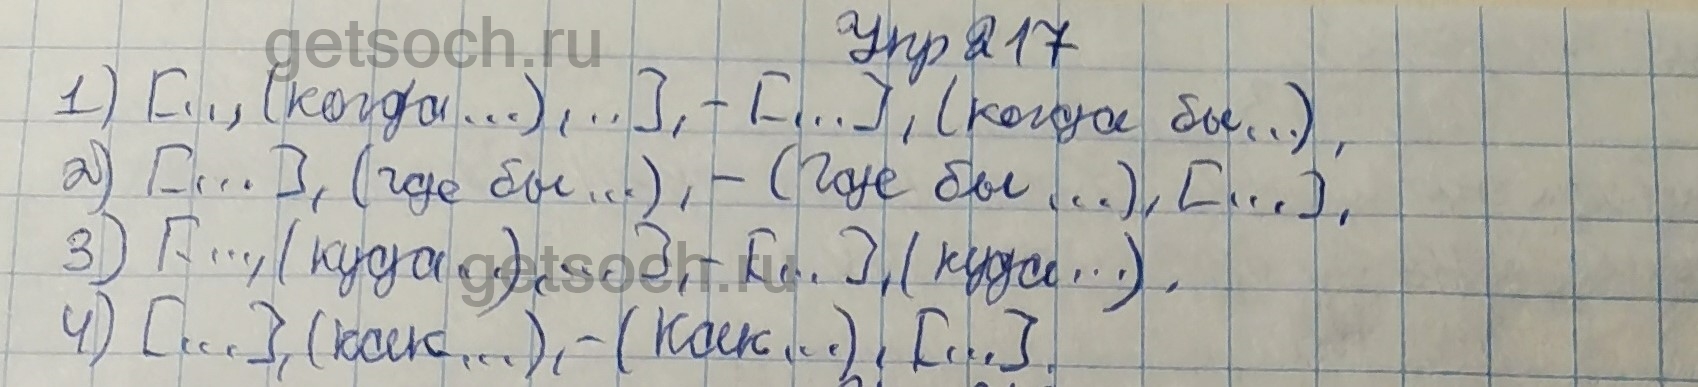 getsoch.ru
Упр 217
1) [.., (когда...), ..], - [...], (когда бы...),
2) [...], (где бы...), - (Где бы ...), [...],
3) [..., (куда...), ...], - [...], (куда...),
getsoch.ru
4) [...], (как...), - (Как...), [...].